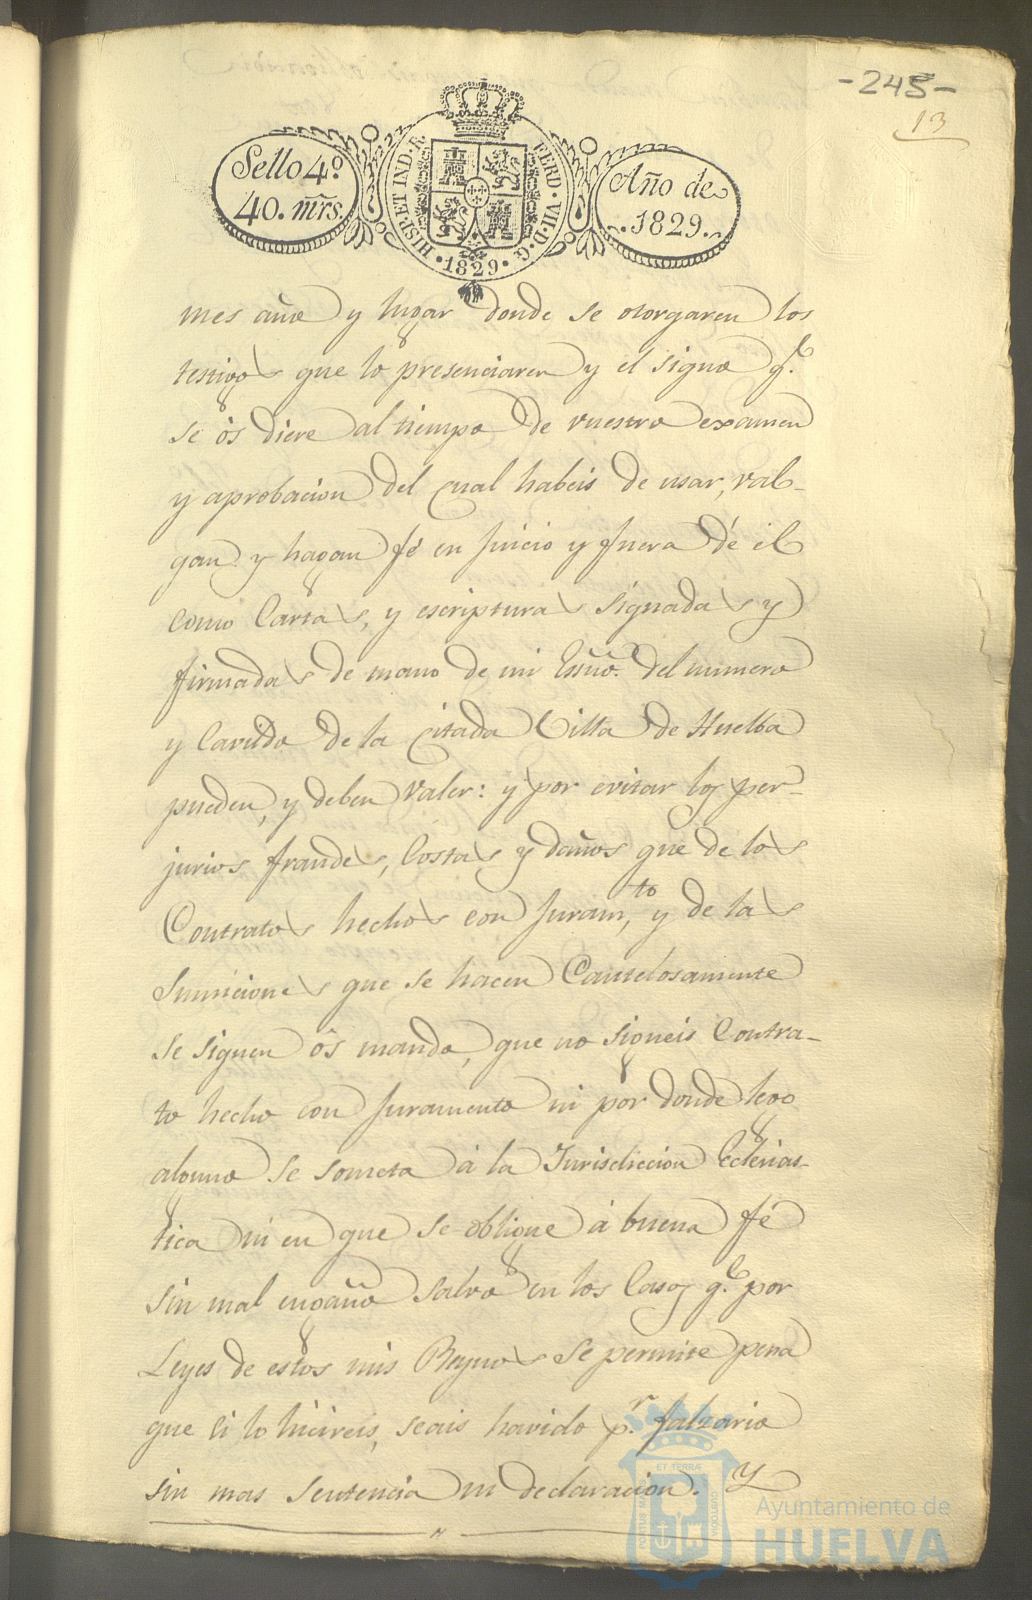 -245-
13
Sello 4.º
40. mrs.
HISP. ET IND. R.
FERD. VII. D. G.
·1829·
Año de
.1829.
mes año y lugar donde se otorgaren los
testigos que lo presenciaren y el signo q.e
se òs diere al tiempo de vuestro examen
y aprobacion del cual habeis de usar, val-
gan y hagan fé en Juicio y fuera dé él
como Cartas, y escripturas signadas y
firmadas de mano de mi Essno. del numero
y Cavildo de la Citada Villa de Huelba
pueden, y deben valer: y por evitar los per-
jurios fraudes, Costas y daños que de los
Contratos hechos con Juram.to, y de las
Sumiciones que se hacen Cautelosamente
se siguen òs mando, que no signeis Contra-
to hecho con Juramento ni por donde lego
alguno se someta á la Jurisdiccion Eclesias-
tica ni en que se obligue á buena fé
sin mal engaño salvo en los Casos q.e por
Leyes de estos mis Reynos se permite pena
que si lo hiciereis, seais havido p.r falzario
sin mas sentencia ni declaracion. Y
PORTUS MARIS
ET TERRÆ
CUSTODIA
Ayuntamiento de
HUELVA